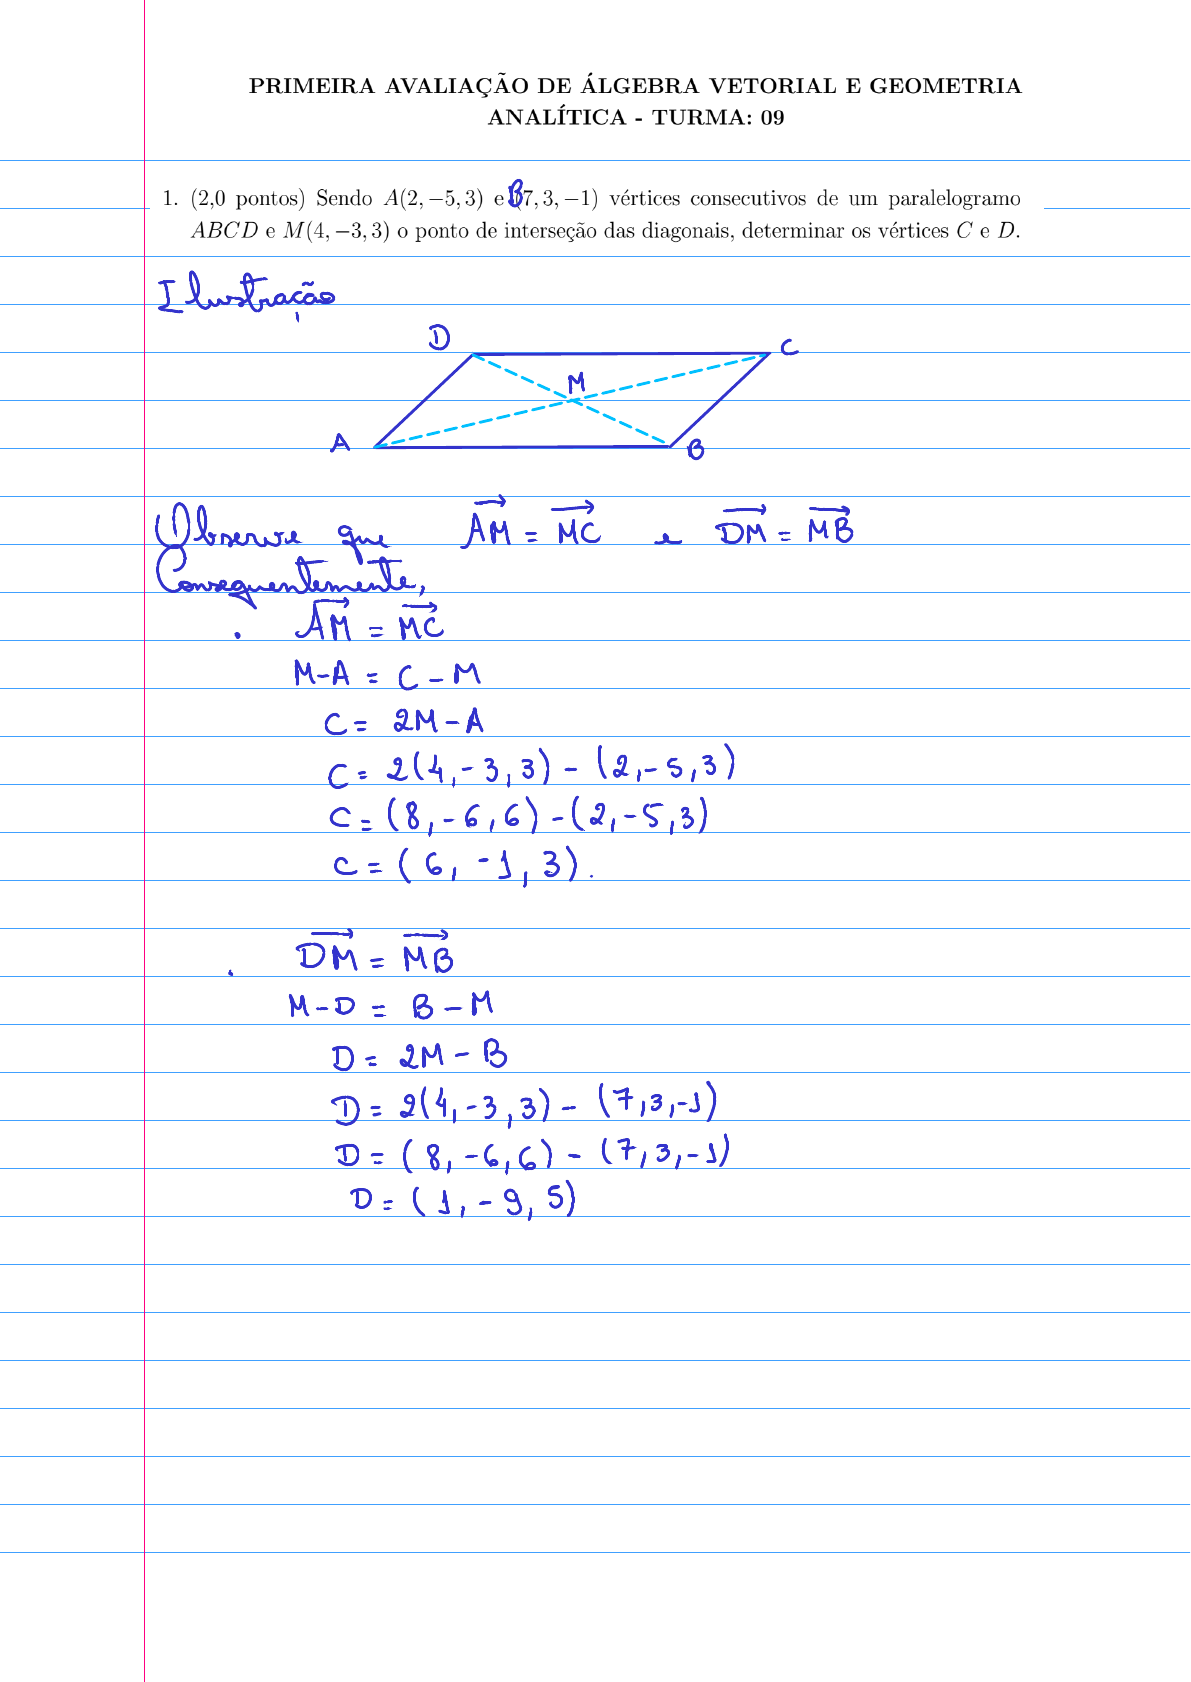 PRIMEIRA AVALIAÇÃO DE ÁLGEBRA VETORIAL E GEOMETRIA
ANALÍTICA - TURMA: 09
1. (2,0 pontos) Sendo A(2, −5, 3) e B(7, 3, −1) vértices consecutivos de um paralelogramo
ABCD e M(4, −3, 3) o ponto de interseção das diagonais, determinar os vértices C e D.
Ilustração
D
C
M
A
B
Observe que \overrightarrow{AM} = \overrightarrow{MC} e \overrightarrow{DM} = \overrightarrow{MB}
Consequentemente,
. \overrightarrow{AM} = \overrightarrow{MC}
M-A = C-M
C = 2M-A
C = 2(4,-3,3) - (2,-5,3)
C = (8,-6,6)-(2,-5,3)
C = (6, -1, 3).
. \overrightarrow{DM} = \overrightarrow{MB}
M-D = B-M
D = 2M-B
D = 2(4,-3,3) - (7,3,-1)
D = (8,-6,6) - (7,3,-1)
D = (1,-9,5)